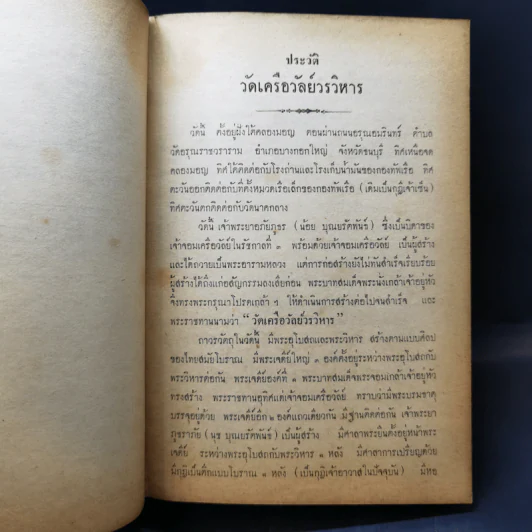 ประวัติ
วัดเครือวัลย์วรวิหาร
วัดนี้ ตั้งอยู่ฝั่งใต้คลองมอญ ตอนผ่านถนนอรุณอมรินทร์ ตำบล
วัดอรุณราชวราราม อำเภอบางกอกใหญ่ จังหวัดธนบุรี ทิศเหนือจด
คลองมอญ ทิศใต้ติดต่อกับโรงถ่านและโรงเก็บน้ำมันของกองทัพเรือ ทิศ
ตะวันออกติดต่อกับที่ตั้งหมวดเรือเล็กของกองทัพเรือ (เดิมเป็นกุฎีเจ้าเซ็น)
ทิศตะวันตกติดต่อกับวัดนาคกลาง
วัดนี้ เจ้าพระยาอภัยภูธร (น้อย บุณยรัตพันธ์) ซึ่งเป็นบิดาของ
เจ้าจอมเครือวัลย์ในรัชกาลที่ ๓ พร้อมด้วยเจ้าจอมเครือวัลย์ เป็นผู้สร้าง
และได้ถวายเป็นพระอารามหลวง แต่การก่อสร้างยังไม่ทันสำเร็จเรียบร้อย
ผู้สร้างได้ถึงแก่อสัญกรรมลงเสียก่อน พระบาทสมเด็จพระนั่งเกล้าเจ้าอยู่หัว
จึงทรงพระกรุณาโปรดเกล้า ฯ ให้ดำเนินการสร้างต่อไปจนสำเร็จ และ
พระราชทานนามว่า “วัดเครือวัลย์วรวิหาร”
ถาวรวัตถุในวัดนี้ มีพระอุโบสถและพระวิหาร สร้างตามแบบศิลป
ของไทยสมัยโบราณ มีพระเจดีย์ใหญ่ ๓ องค์ตั้งอยู่ระหว่างพระอุโบสถกับ
พระวิหารต่อกัน พระเจดีย์องค์ที่ ๑ พระบาทสมเด็จพระจอมเกล้าเจ้าอยู่หัว
ทรงสร้าง พระราชทานอุทิศแด่เจ้าจอมเครือวัลย์ ทราบว่ามีพระบรมธาตุ
บรรจุอยู่ด้วย พระเจดีย์อีก ๒ องค์แถวเดียวกัน มีฐานติดต่อกัน เจ้าพระยา
ภูธราภัย (นุช บุณยรัตพันธ์) เป็นผู้สร้าง มีศาลาพระยืนตั้งอยู่หน้าพระ
เจดีย์ ระหว่างพระอุโบสกับพระวิหาร ๑ หลัง มีศาลาการเปรียญด้วย
มีกุฎิเป็นตึกแบบโบราณ ๑ หลัง (เป็นกุฏิเจ้าอาวาสในปัจจุบัน) มีหอ